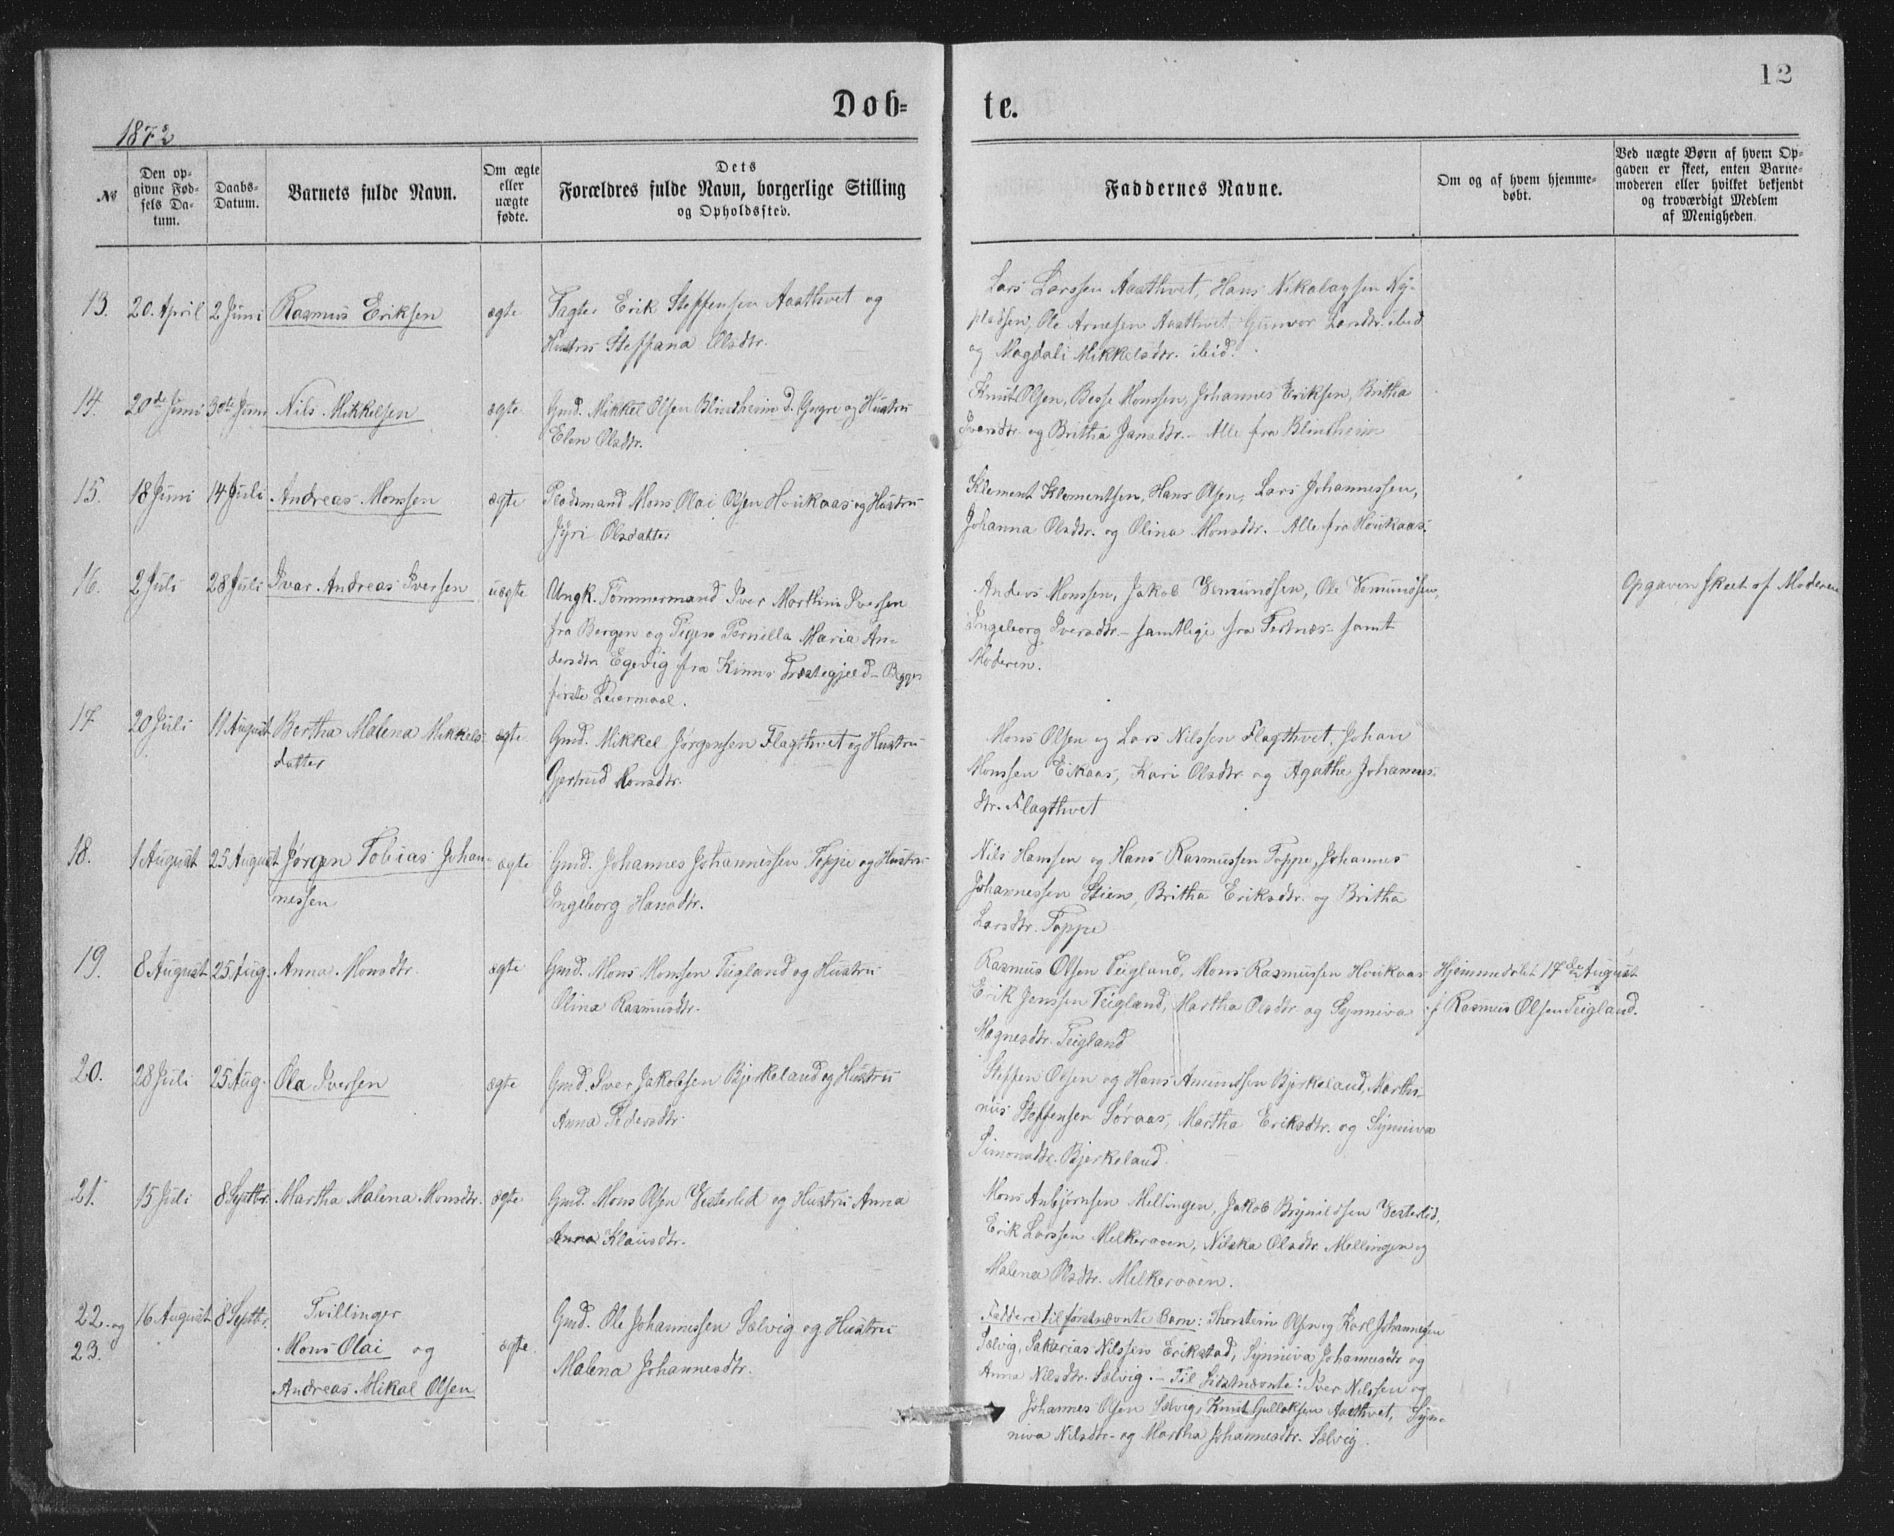 12
Døb= te.
1872
№
Den op-
givne Fød-
sels Da-
tum.
Daabs-
Datum.
Barnets fulde Navn.
Om ægte
eller
uægte
fødte.
Dets
Forældres fulde Navn, borgerlige Stilling
og Opholdssted.
Faddernes Navne.
Om og af hvem hjemme-
døbt.
Ved uægte Børn af hvem Op-
gaven er skeet, enten Barne-
moderen eller hvilket bekjendt
og troværdigt Medlem
af Menigheden.
13. 20. April 2 Juni Rasmus Eriksen ægte
Erik Steffensen Aasthvet og
Hustru Steffana Olsdtr.
Lars Larssen Aasthvet, Hans Nikolaysen Ny-
pladsen, Ole Arnesen Aasthvet, Gunvor Larsdtr. ibid
og Magdali Mikkelsdtr. ibid.
14. 20de Juni 30te Juni Nils Mikkelsen ægte
Gmd. Mikkel Olsen Blindheim d. Yngre og Hustru
Elen Olsdtr.
Knut Olsen, Besse Monssen, Johannes Eriksen, Britha
Iversdtr. og Britha Jansdtr. – Alle fra Blindheim
15. 18 Juni 14 Juli Andreas Monsen ægte
Pladsmand Mons Olai Olsen Houkaas og Hustru
Jyri Olsdatter
Klement Klementsen, Hans Olsen, Lars Johannessen,
Johanna Olsdtr. og Olina Monsdtr. Alle fra Houkaas.
16. 2 Juli 28 Juli Ivar Andreas Iversen uægte
Ungk. Tømmermand Iver Marthin Iversen
fra Bergen og Pigen Pernilla Maria An-
dersdtr. Egevig fra Kinns Præstegjeld – Begges
første Leiermaal.
Anders Monssen, Jakob Vemundsen, Ole Vemundsen,
Ingeborg Iversdtr. – samtlige fra Tertnæs – samt
Moderen.
Opgaven skeet af Moderen
17 20 Juli 11 August Bertha Malena Mikkels-
datter
ægte
Gmd. Mikkel Jørgensen Flagthvet og Hustru
Gjertrud Monsdtr.
Mons Olsen og Lars Nilssen Flagthvet, Johan
Monssen Eikaas, Kari Olsdtr. og Agathe Johannes-
dtr. Flagthvet
18. 1 August 25 August Jørgen Tobias Johan-
nessen
ægte
Gmd. Johannes Johannessen Toppe og Hustru
Ingeborg Hansdtr.
Nils Hanssen og Hans Rasmussen Toppe, Johannes
Johannessen Stien, Britha Eriksdtr. og Britha
Larsdtr. Toppe
19. 8 August 25 Aug. Anna Monsdtr. ægte
Gmd. Mons Monsen Teigland og Hustru
Olina Rasmusdtr.
Rasmus Olsen Teigland, Mons Rasmussen Houkaas
Erik Jenssen Teigland, Martha Olsdtr. og Synniva
Magnesdtr. Teigland
Hjemmedøbt 17de August
af Rasmus Olsen Teigland.
20. 28 Juli 25 Aug. Ola Iversen ægte
Gmd. Iver Jakobsen Bjerkeland og Hustru
Anna Pedersdtr.
Steffen Olsen og Hans Amundsen Bjerkeland, Marthi-
nus Steffensen Søraas, Martha Eriksdtr. og Synniva
Simonsdtr. Bjerkeland.
21. 15 Juli 8 Septbr. Martha Malena Monsdtr. ægte
Gmd. Mons Olsen Vesterlid og Hustru Anna
Anna Klausdtr.
Mons Anbjørnsen Mellingen, Jakob Brynildsen Vesterlid,
Erik Larssen Melkeraaen, Nilska Olsdtr. Mellingen og
Malena Olsdtr. Melkeraaen.
22. og
23.
16 August 8 Septbr. Tvillinger
Mons Olai og
Andreas Mikal Olsen
ægte
Gmd. Ole Johannessen Sælvig og Hustru
Malena Johannesdtr.
Faddere til førstnævnte Barn: Thorstein Olsen og Karl Johannesen
Sælvig, Sakarias Nilssen Erikstad, Synniva Johannesdtr og
Anna Nilsdtr. Sælvig. – Til Sidstnævnte: Iver Nilssen og
Johannes Olsen Sælvig, Knut Gulleksen Aasthvet, Syn-
niva Nilsdtr. og Martha Johannesdtr. Sælvig.